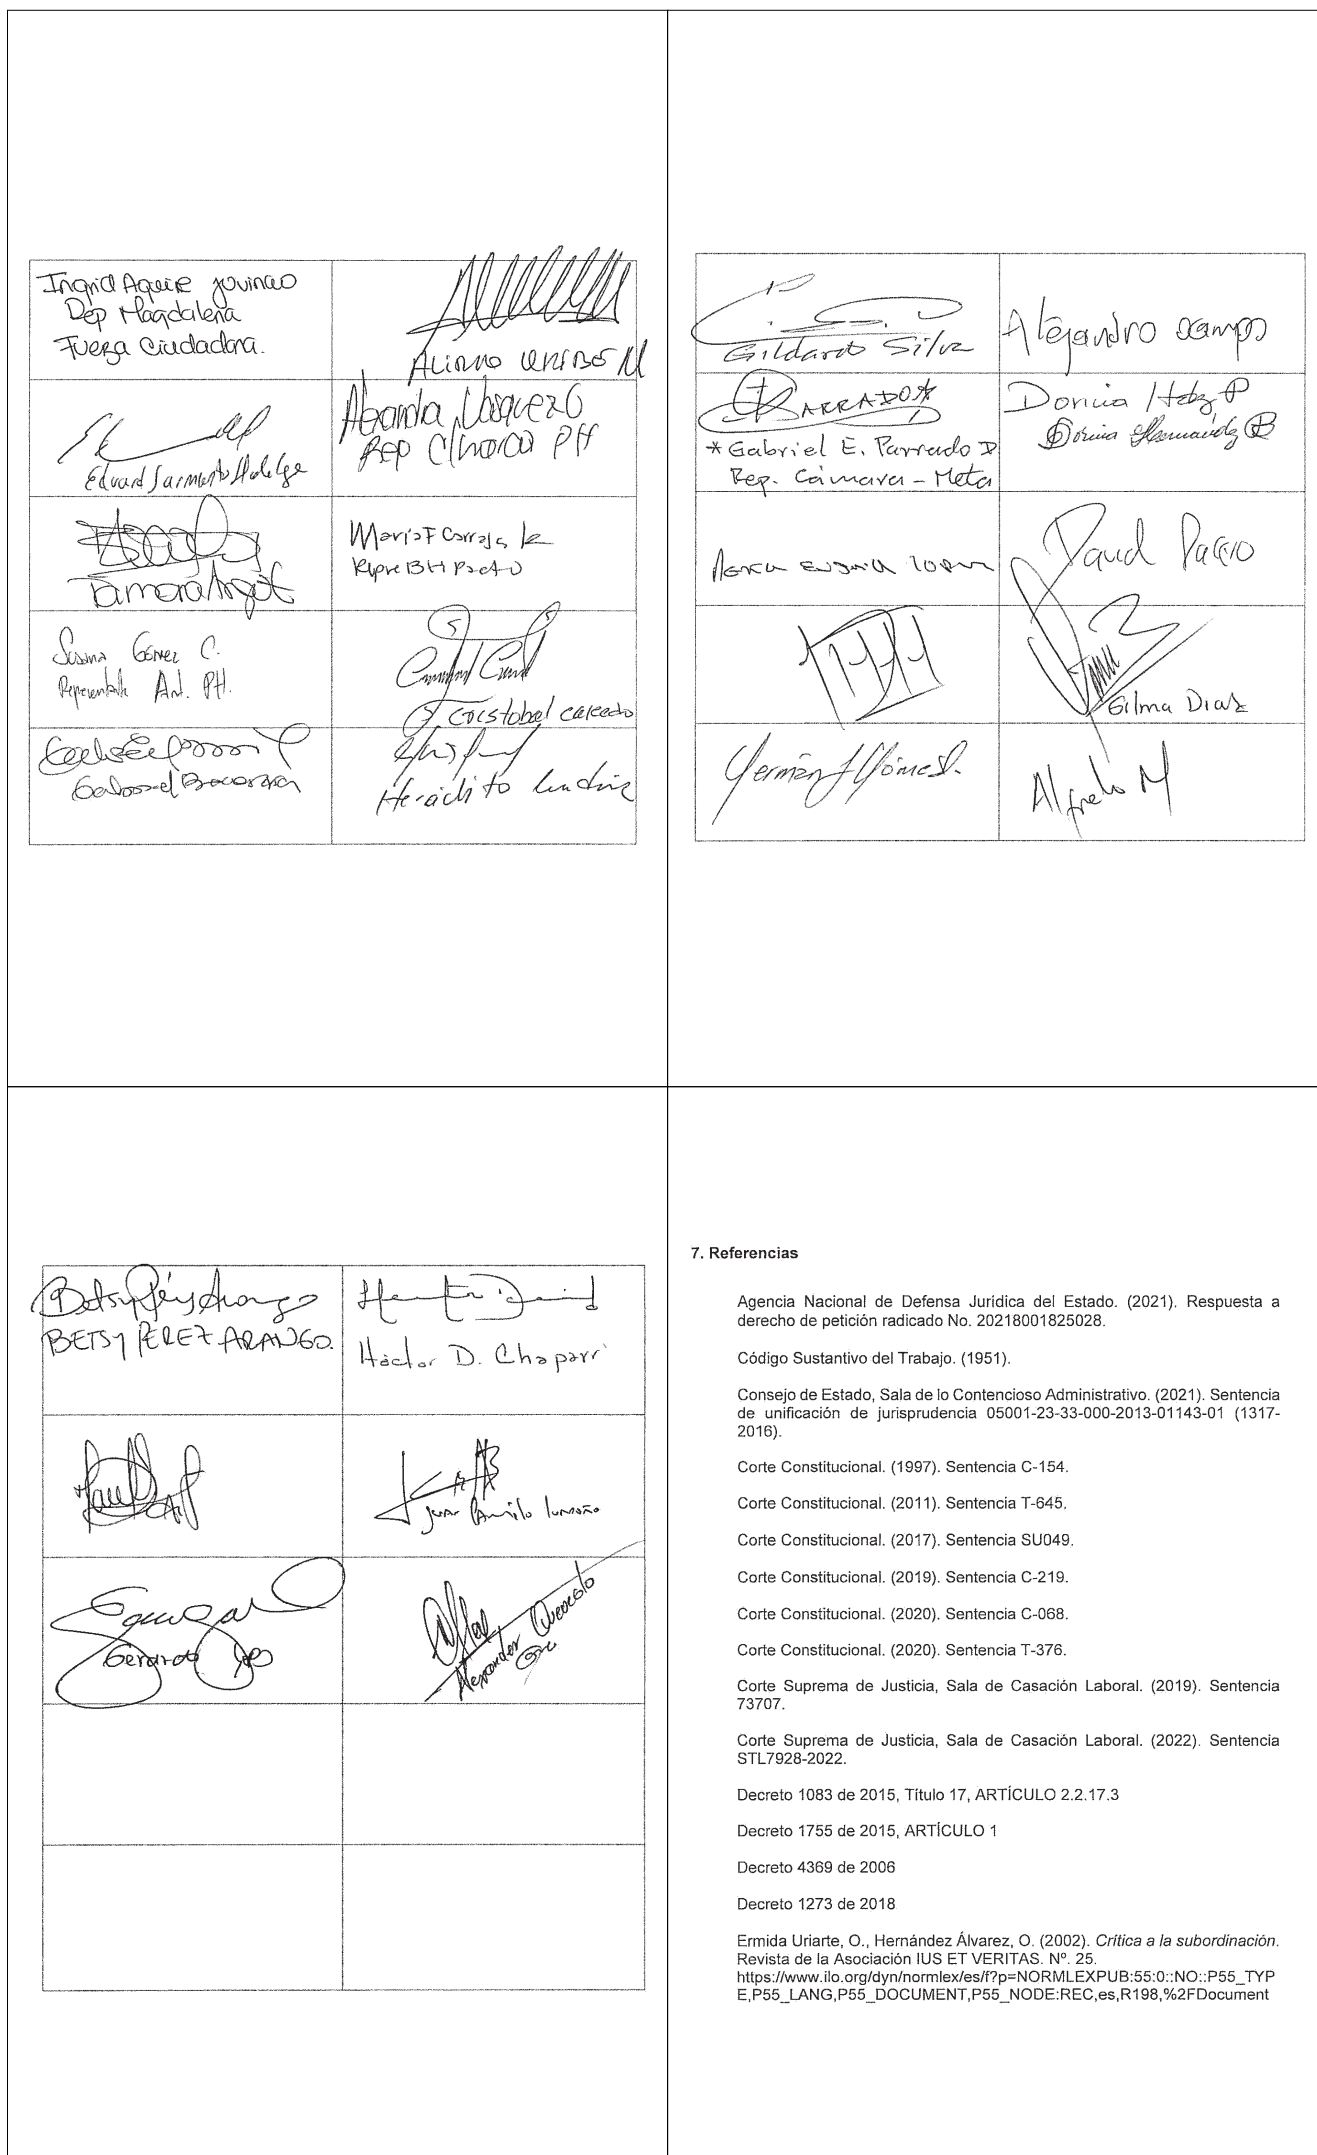 Ingrid Aguirre Juvinao
Dep Magdalena
Fuerza Ciudadana.
Alirio Uribe M
Eduard Sarmiento Hidalgo
Alexandra Vásquez O
Rep C/marca PH
Tamara Argote
María F Carrasc
Repre BH Pacto
Susana Gómez C.
Representante Ant. PH.
Cristobal Caicedo
Gabriel Becerra
Heráclito Landinez
Gildardo Silva
Alejandro Ocampo
PARRADO*
* Gabriel E. Parrado D
Rep. Cámara - Meta
Dorina Hdez P
Dorina Hernández P
David Racero
Gilma Diaz
Germán Gómez
Alfredo M
Betsy Pérez Arango
BETSY PEREZ ARANGO.
Héctor D. Chaparr
Juan Camilo Londoño
Gerardo
Alexander Quevedo
7. Referencias
Agencia Nacional de Defensa Jurídica del Estado. (2021). Respuesta a
derecho de petición radicado No. 20218001825028.
Código Sustantivo del Trabajo. (1951).
Consejo de Estado, Sala de lo Contencioso Administrativo. (2021). Sentencia
de unificación de jurisprudencia 05001-23-33-000-2013-01143-01 (1317-
2016).
Corte Constitucional. (1997). Sentencia C-154.
Corte Constitucional. (2011). Sentencia T-645.
Corte Constitucional. (2017). Sentencia SU049.
Corte Constitucional. (2019). Sentencia C-219.
Corte Constitucional. (2020). Sentencia C-068.
Corte Constitucional. (2020). Sentencia T-376.
Corte Suprema de Justicia, Sala de Casación Laboral. (2019). Sentencia
73707.
Corte Suprema de Justicia, Sala de Casación Laboral. (2022). Sentencia
STL7928-2022.
Decreto 1083 de 2015, Título 17, ARTÍCULO 2.2.17.3
Decreto 1755 de 2015, ARTÍCULO 1
Decreto 4369 de 2006
Decreto 1273 de 2018
Ermida Uriarte, O., Hernández Álvarez, O. (2002). Crítica a la subordinación.
Revista de la Asociación IUS ET VERITAS. Nº. 25.
https://www.ilo.org/dyn/normlex/es/f?p=NORMLEXPUB:55:0::NO::P55_TYP
E,P55_LANG,P55_DOCUMENT,P55_NODE:REC,es,R198,%2FDocument